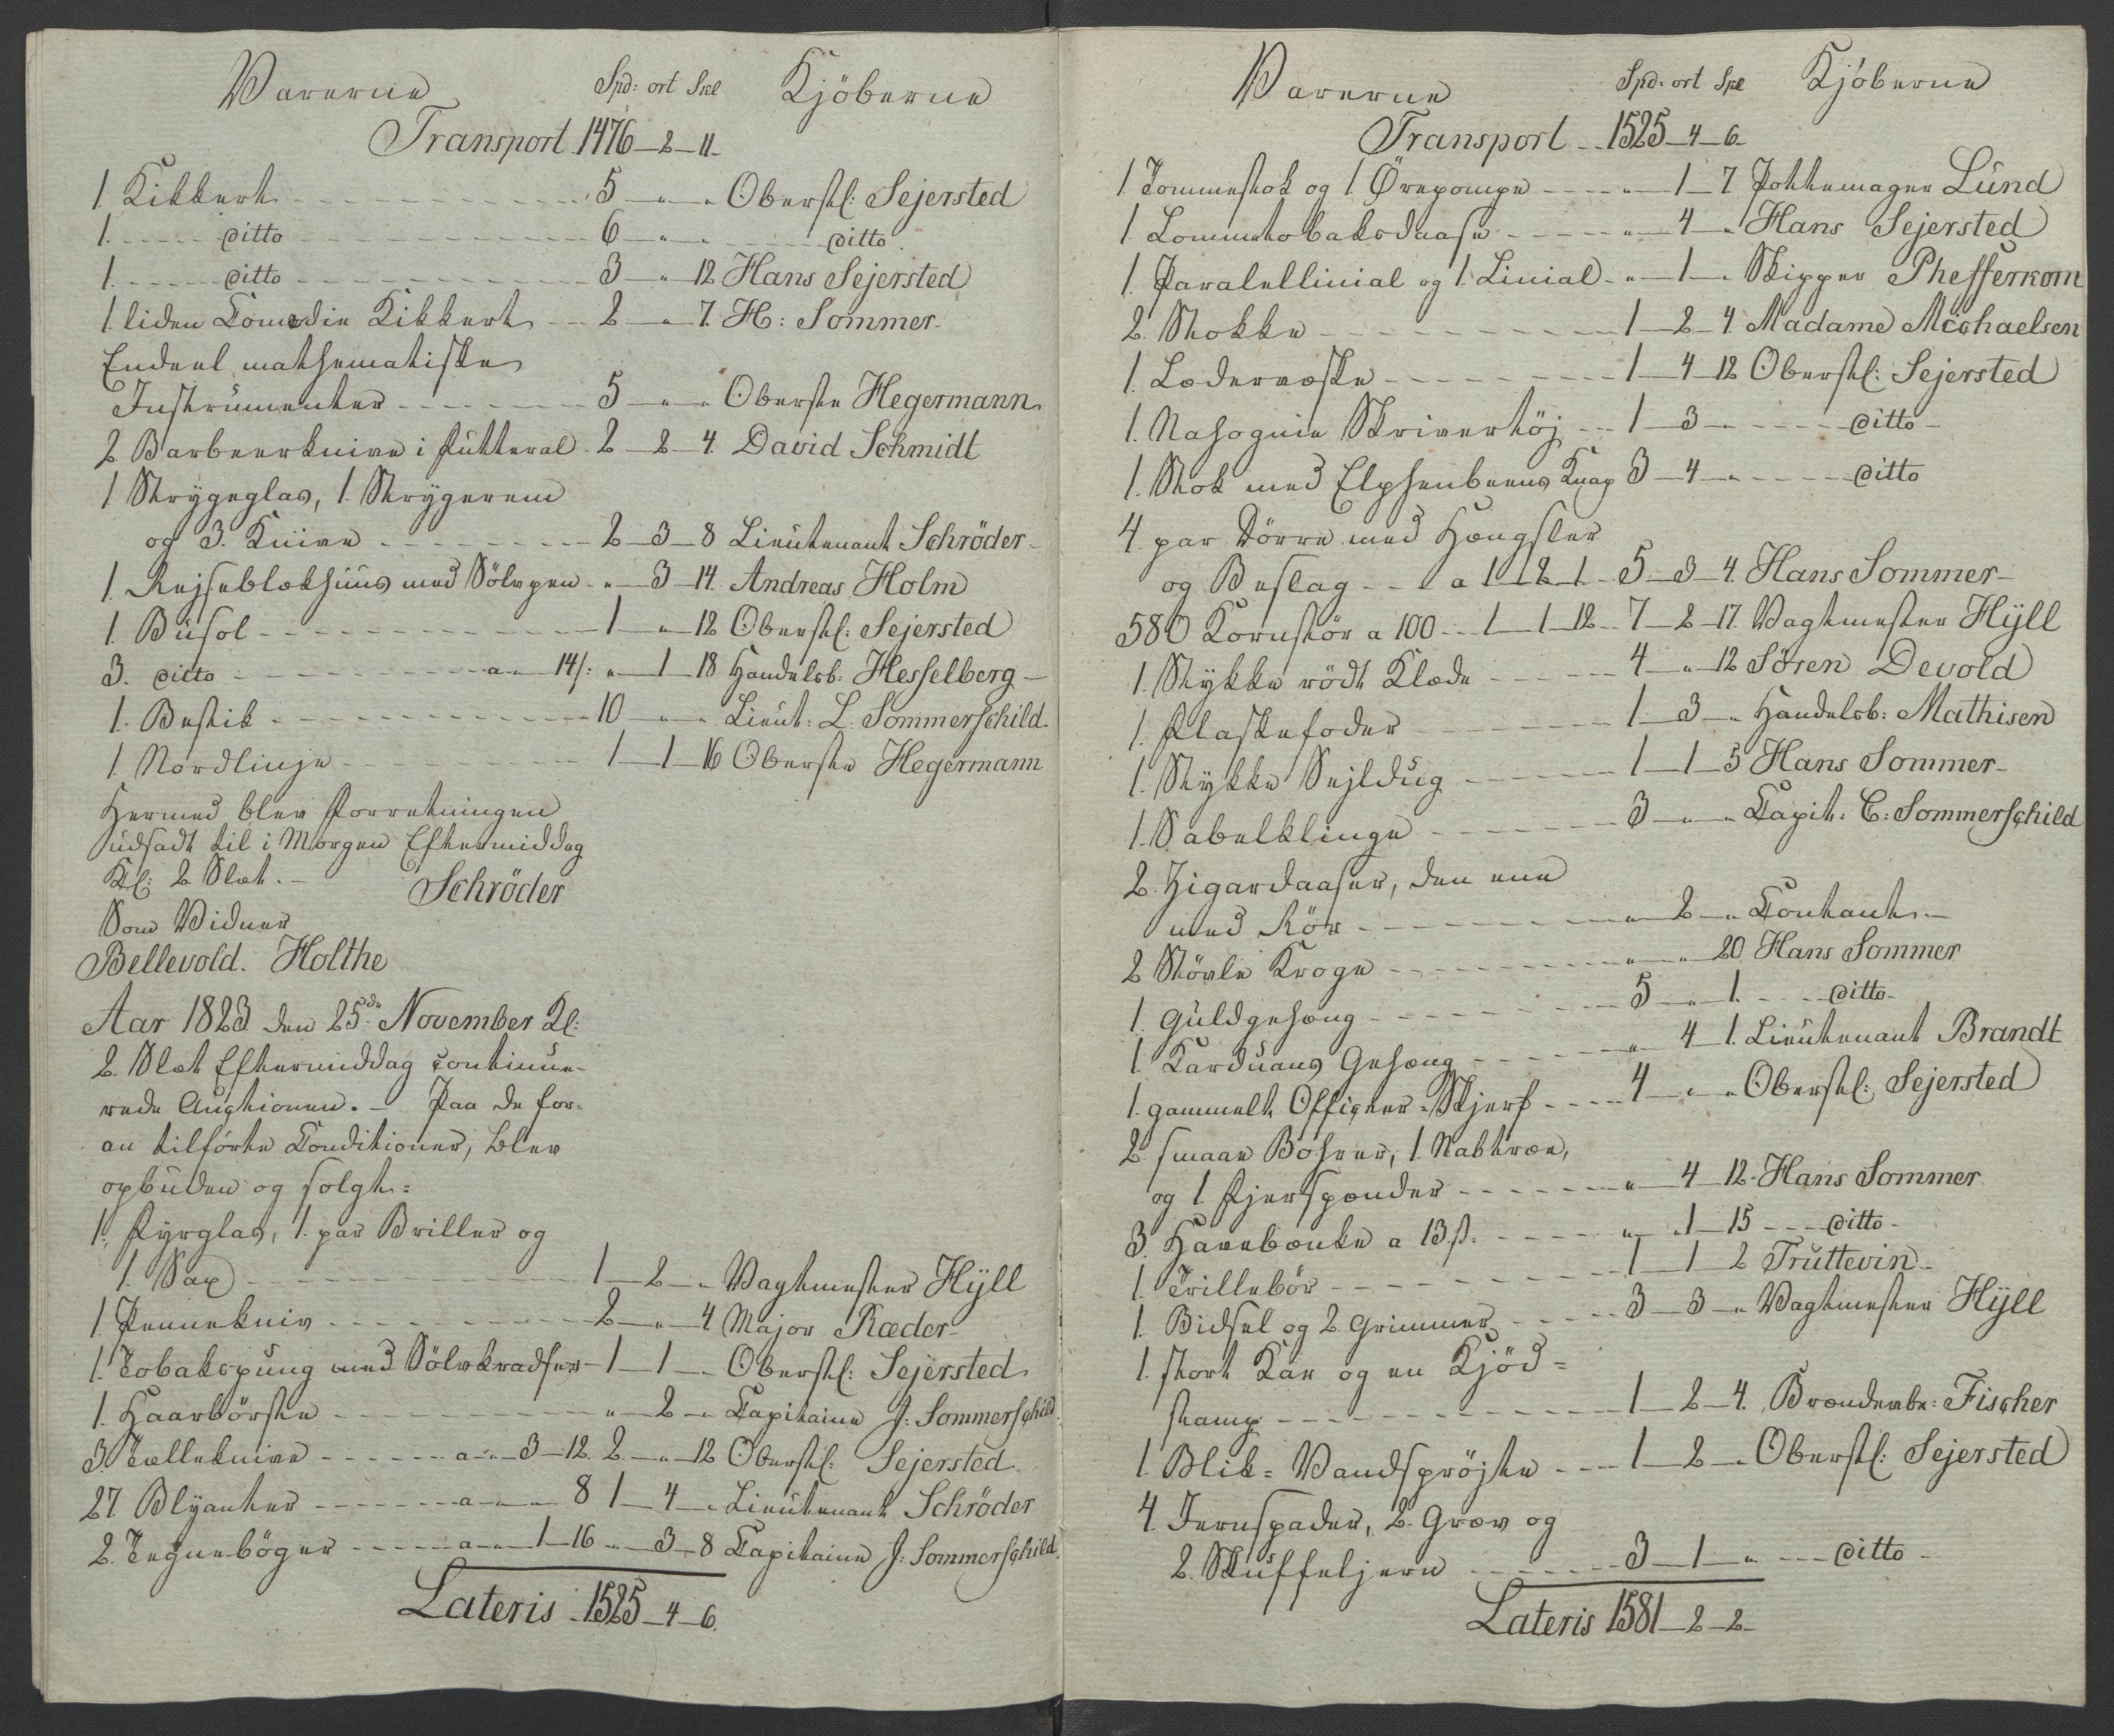 Varerne Spd: ort Skl Kjöberne
Transport 1476 - 2 - 11 -
1 Kikkert - - - 5 - " - " Oberstl: Sejersted
1. - - - ditto - - - 6 - " - " - - - ditto.
1. - - - ditto - - - 3 - " - 12 Hans Sejersted
1. liden Comedie Kikkert - - 2 - " - 7. H: Sommer.
Endeel mathematiske
Instrumenter - - - 5 - " - " Oberste Hegermann
2 Barbeerknive i Futteral - 2 - 2 - 4. David Schmidt
1 Strygeglas, 1. Strygerem
og 3. Knive - - - 2 - 3 - 8 Lieutenant Schröder -
1. Rejseblækhuus med Sölvpen - " - 3 - 14. Andreas Holm
1. Busol - - - 1 - " - 12 Oberstl: Sejersted
3. ditto - - - a - " - 14 s: " - 1 - 18 Handelsb: Hesselberg -
1. Bestik - - - 10 - " - " Lieut: L. Sommerschild.
1. Nordlinje - - - 1 - 1 - 16 Oberste Hegermann
Hermed blev Forretningen
udsadt til i Morgen Eftermiddag
Kl: 2 Slæt. - Schröder
Som Vidner
Bellevold. Holthe
Aar 1823 den 25de November Kl:
2. Slæt Eftermiddag continue-
rede Auctionen. - Paa de for-
an tilförte Conditioner, blev
opbuden og solgt:
1. Fyrglas, 1. par Briller og
1. Sax - - - 1 - 2 - " Vagtmester Hÿll
1. Pennekniv - - - 2 - " - 4 Major Ræder -
1. Tobakspung med Sölvkradser - 1 - 1 - " Oberstl: Sejersted
1. Haarbörste - - - " - 2 - " Capitaine J: Sommerschild.
3. Tælleknive - - - a - " - 3 - 12. 2 - " - 12 Oberstl: Sejersted
27. Blÿanter - - - a - " - " 8 1 - 4 - " Lieutenant Schröder
2. Tegneböger - - - a - " - 1 - 16 - " - 3 - 8 Capitaine J: Sommerschild.
Lateris 1525 - 4 - 6.
Varerne Spd: ort Skl Kjöberne
Transport - - 1525 - 4 - 6 -
1 Tommestok og 1 Örepompe - - - " - 1 - 7 Pottemager Lund
1. Lommetobaksdaase - - - " - 4 - " Hans Sejersted
1. Paralellinial og 1. Linial - " - 1 - " Skipper Phefferkorn
2. Stokke - - - 1 - 2 - 4 Madame Michaelsen
1. Lædervæske - - - 1 - 4 - 12 Oberstl: Sejersted
1. Mahognie Skrivertöj - - 1 - 3 - " - - - ditto -
1. Stok med Elphenbeens Knap 3 - 4 - " - - - ditto
4. par Dörre med Hængsler
og Beslag - - a 1 - 2 - 1 - 5 - 3 - 4. Hans Sommer -
580 Kornstör a 100 - - 1 - 1 - 12 - 7 - 2 - 17. Vagtmester Hÿll
1. Stykke rödt Klæde - - - 4 - " - 12 Sören Devold
1. Flaskefoder - - - 1 - 3 - " Handelsb: Mathisen
1. Stykke Sejldug - - - 1 - 1 - 5 Hans Sommer -
1. Sabelklinge - - - 3 - " - " Capit: C: Sommerschild
2. Zigardaaser, den ene
med Rör - - - " - 2 - " Contant -
2 Stövle Kroge - - - " - " 20 Hans Sommer
1. Guldgehæng - - - 5 - " - 1. - - ditto -
1. Karduans Gehæng - - - " 4 - 1. Lieutenant Brandt
1. gammelt Officeer-Skjerf - - - 4 - " - " Oberstl: Sejersted
2. smaae Bohrer, 1. Nabtræe,
og 1 Fjerspænder - - - " - 4 - 12 - Hans Sommer
3. Havebænke a 13. s: - - - " - 1 - 15 - - - ditto -
1. Trillebör - - - 1 - 1 - 2 Truttevin -
1. Bidsel og 2. Grimmer - - - 3 - 3 - " Vagtmester Hÿll
1. stort Kar og en Kjöd=
stamp - - - 1 - 2 - 4. Brændevbr: Fischer
1. Blik= Vandspröjte - - - 1 - 2 - " Oberstl: Sejersted
4. Jernspader, 2. Græv og
2. Skuffeljern - - - 3 - 1 - " - - - ditto -
Lateris 1581 - 2 - 2 -